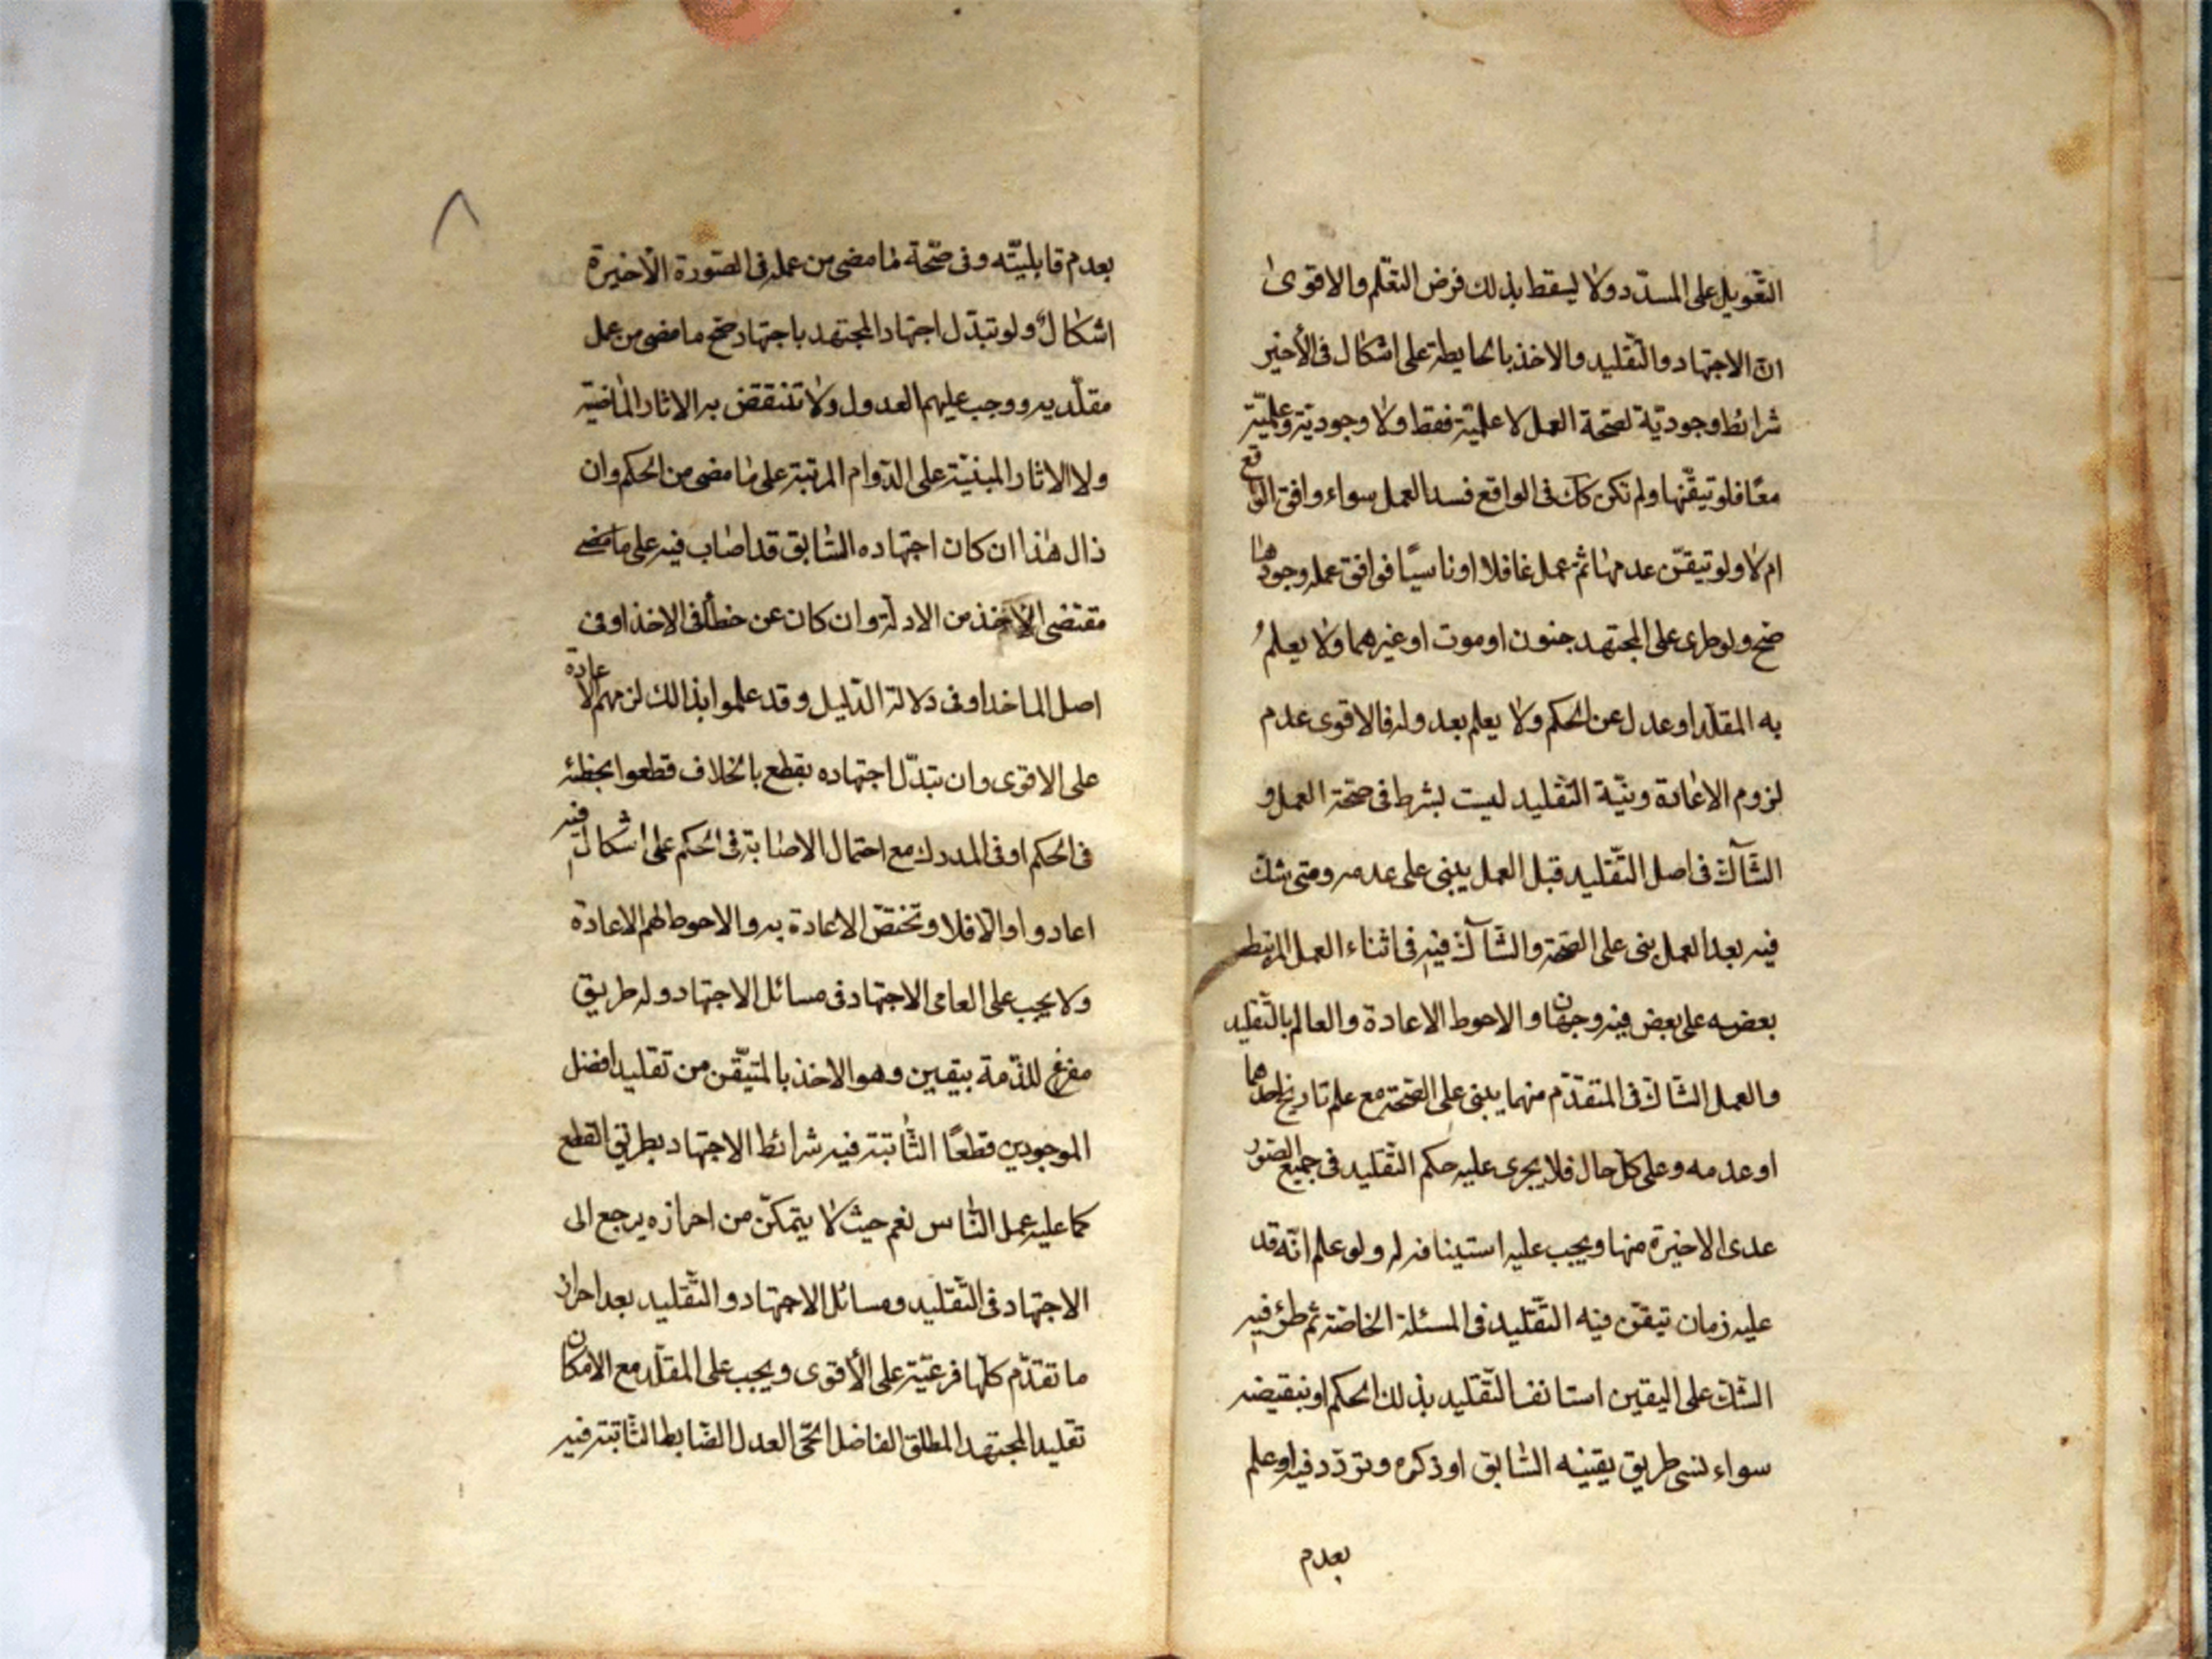 التّعويل على المسدّد ولا يسقط بذلك فرض التعّلم والاقوى
انّ الاجتهاد والتّقليد والاخذ بالحايطة على اشكال فى الأخير
شرائط وجوديّة لصحّة العمل لا علميّة فقط ولا وجوديّة وعلميّة
معًا فلو تيقّنها ولم تكن كك فى الواقع فسد العمل سواء وافق الواقع
ام لا ولو تيقّن عدمها ثم عمل غافلا او ناسيًا فوافق عمله وجودها
صحّ ولو طرى على المجتهد جنون او موت او غيرهما ولا يعلمُ
به المقلّد او عدل عن الحكم ولا يعلم بعدوله فالاقوى عدم
لزوم الاعادة ونيّة التّقليد ليست بشرط فى صحّة العمل و
الشّآكّ فى اصل التّقليد قبل العمل يبنى على عدمه ومتى شكّ
فيه بعد العمل بنى على الصّحة والشّآكّ فيه فى اثناء العمل المرتبط
بعضه على بعض فيه وجهان والاحوط الاعادة والعالم بالتّقليد
والعمل الشّاكّ فى المتقدّم منهما يبنى على الصّحّة مع علم تاريخ احدهما
او عدمه وعلى كلّ حال فلا يجرى عليه حكم التّقليد فى جميع الصّور
عدى الاخيرة منها ويجب عليه استينافه له ولو علم انّه قد
عليه زمان تيقّن فيه التّقليد فى المسئلة الخاصّة ثم طرء فيه
الشّكّ على اليقين استانف التّقليد بذلك الحكم او بنقيضه
سواء نسى طريق يقينه السّابق او ذكره وتردّد فيه او علم
بعدم
٨
بعدم قابليّته وفى صحّة ما مضى من عمله فى الصّورة الأخيرة
اشكالٌ ولو تبدّل اجتهاد المجتهد باجتهاد صحّ ما مضى من عمل
مقلّديه ووجب عليهم العدول ولا تنتقض به الاثار الماضية
ولا الاثار المبنيّة على الدّوام المرتبة على ما مضى من الحكم وان
زال هذا ان كان اجتهاده السّابق قد اصاب فيه على ما مضى
مقتضى الأخذ من الادلّة وان كان عن خطأ فى الاخذ او فى
اصل الماخذ او فى دلالة الدّليل وقد علموا بذالك لزمهم الاعادة
على الاقوى وان تبدّل اجتهاده بقطع بالخلاف قطعوا بخطئه
فى الحكم او فى المدرك مع احتمال الاصابة فى الحكم على اشكال فيه
اعادوا والّا فلا وتختصّ الاعادة به والاحوط لهم الاعادة
ولا يجب على العامى الاجتهاد فى مسائل الاجتهاد وله طريق
مفرغ للذّمة بيقين وهو الاخذ بالمتيّقن من تقليد افضل
الموجودين قطعًا الثّابتة فيه شرائط الاجتهاد بطريق القطع
كما عليه عمل النّاس نعم حيث لا يتمكّن من احرازه يرجع الى
الاجتهاد فى التّقليد ومسائل الاجتهاد والتّقليد بعد احراز
ما تقدّم كلّها فرعيّة على الأقوى ويجب على المقلّد مع الامكان
تقليد المجتهد المطلق الفاضل الحّى العدل الضّابط الثّابتة فيه